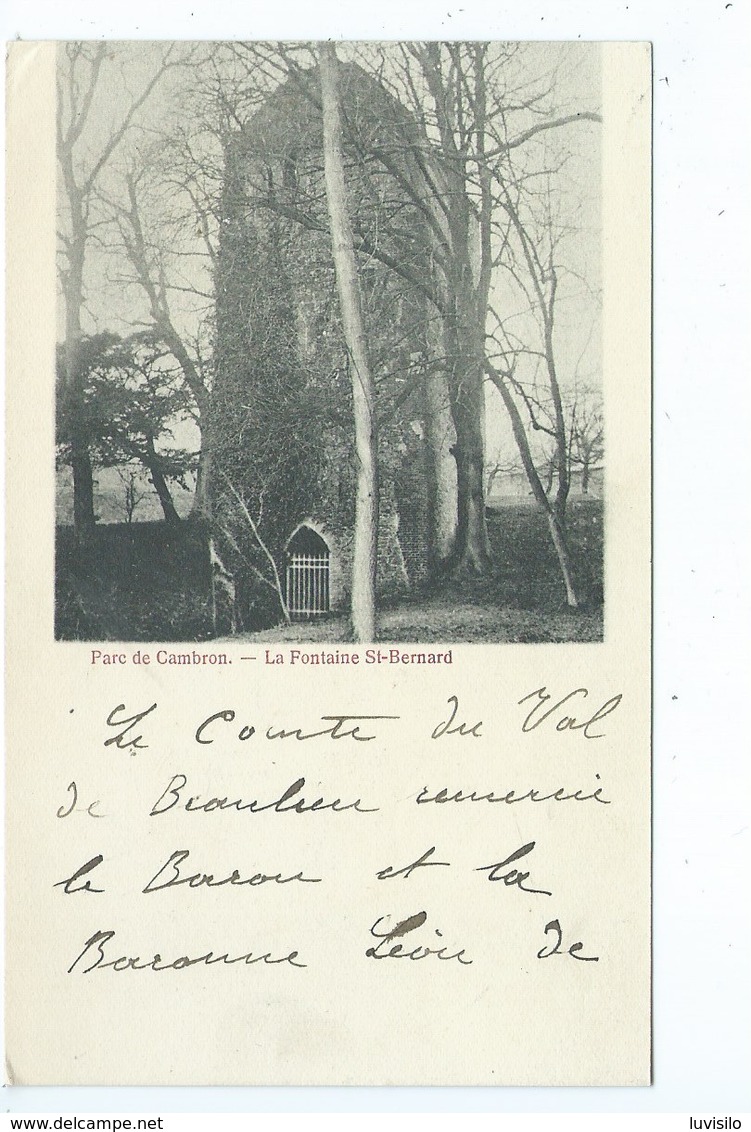 Parc de Cambron. — La Fontaine St-Bernard
Le Comte du Val
de Beaulieu remercie
le Baron et la
Baronne Léon de
luvisilo